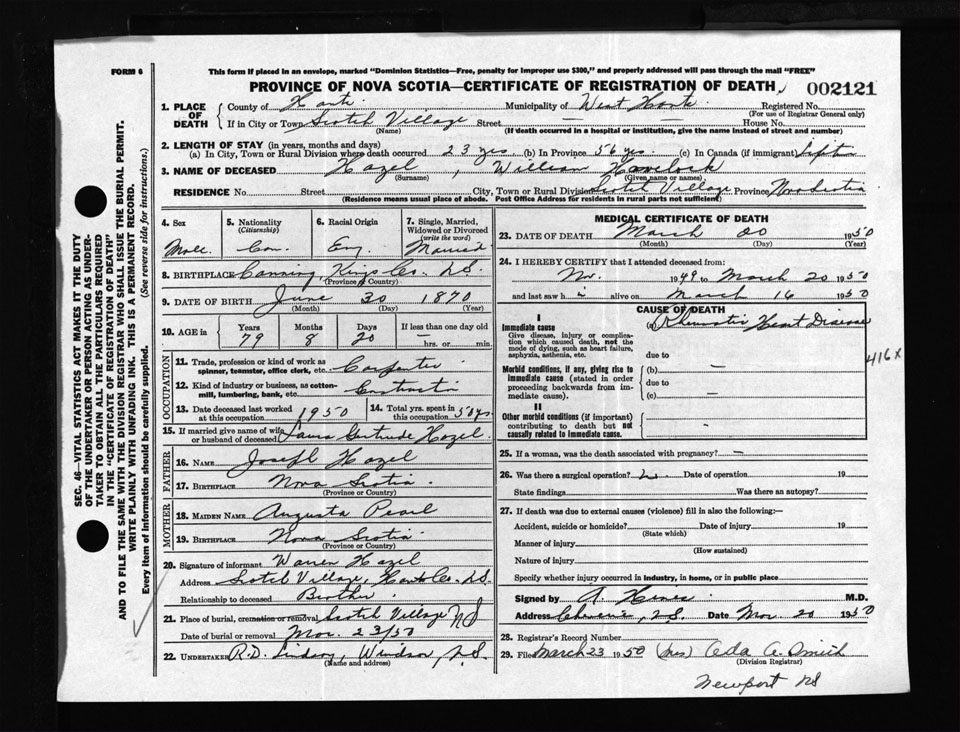 FORM 6
This form if placed in an envelope, marked "Dominion Statistics—Free, penalty for improper use $300," and properly addressed will pass through the mail "FREE"
PROVINCE OF NOVA SCOTIA—CERTIFICATE OF REGISTRATION OF DEATH
002121
1. PLACE OF DEATH { County of Hants Municipality of West Hants Registered No.
(For use of Registrar General only)
If in City or Town Scotch Village Street — House No. —
(Name) (If death occurred in a hospital or institution, give the name instead of street and number)
2. LENGTH OF STAY (in years, months and days)
(a) In City, Town or Rural Division where death occurred 23 yrs. (b) In Province 56 yrs. (c) In Canada (if immigrant) Lifetime
3. NAME OF DECEASED Hazel, William Havelock
(Surname) (Given name or names)
RESIDENCE No. Street City, Town or Rural Division Scotch Village Province Nova Scotia
(Residence means usual place of abode. Post Office Address for residents in rural parts not sufficient)
4. Sex
Male
5. Nationality
(Citizenship)
Can.
6. Racial Origin
Eng.
7. Single, Married, Widowed or Divorced
(write the word)
Married
8. BIRTHPLACE Canning, Kings Co. N.S.
(Province or Country)
9. DATE OF BIRTH June 30 1870
(Month) (Day) (Year)
10. AGE in Years Months Days If less than one day old
79 8 20 hrs. or min.
OCCUPATION
11. Trade, profession or kind of work as spinner, teamster, office clerk, etc. Carpenter
12. Kind of industry or business, as cotton-mill, lumbering, bank, etc.
13. Date deceased last worked at this occupation 1950
14. Total yrs. spent in this occupation 50 yrs
15. If married give name of wife or husband of deceased Laura Gertrude Hazel
FATHER
16. NAME Joseph Hazel
17. BIRTHPLACE Nova Scotia
(Province or Country)
MOTHER
18. MAIDEN NAME Augusta Pearl
19. BIRTHPLACE Nova Scotia
(Province or Country)
20. Signature of informant Warren Hazel
Address Scotch Village, Hants Co. N.S.
Relationship to deceased Brother
21. Place of burial, cremation or removal Scotch Village NS
Date of burial or removal Mar. 23/50
22. UNDERTAKER R.D. Lindsay, Windsor, N.S.
(Name and address)
MEDICAL CERTIFICATE OF DEATH
23. DATE OF DEATH March 20 1950
(Month) (Day) (Year)
24. I HEREBY CERTIFY that I attended deceased from:
Nov. 1949 to March 20 1950
and last saw h i alive on March 16 1950
CAUSE OF DEATH
I
Immediate cause
Give disease, injury or complication which caused death, not the mode of dying, such as heart failure, asphyxia, asthenia, etc.
(a) Rheumatic Heart Disease
due to
416x
Morbid conditions, if any, giving rise to immediate cause (stated in order proceeding backwards from immediate cause).
(b) —
due to
(c) —
II
Other morbid conditions (if important) contributing to death but not causally related to immediate cause.
—
25. If a woman, was the death associated with pregnancy? —
26. Was there a surgical operation? Date of operation 19
State findings Was there an autopsy?
27. If death was due to external causes (violence) fill in also the following:—
Accident, suicide or homicide? Date of injury 19
(State which)
Manner of injury
(How sustained)
Nature of injury
Specify whether injury occurred in industry, in home, or in public place
Signed by A. M.D.
Address N.S. Date Mar. 20 1950
28. Registrar's Record Number
29. Filed March 23 1950 (Mrs) Ada A. Smith
(Division Registrar)
Newport NS
SEC. 46—VITAL STATISTICS ACT MAKES IT THE DUTY
OF THE UNDERTAKER OR PERSON ACTING AS UNDER-
TAKER TO OBTAIN ALL THE PARTICULARS REQUIRED
IN THE "CERTIFICATE OF REGISTRATION OF DEATH"
AND TO FILE THE SAME WITH THE DIVISION REGISTRAR WHO SHALL ISSUE THE BURIAL PERMIT.
WRITE PLAINLY WITH UNFADING INK. THIS IS A PERMANENT RECORD.
Every item of information should be carefully supplied. (See reverse side for instructions.)